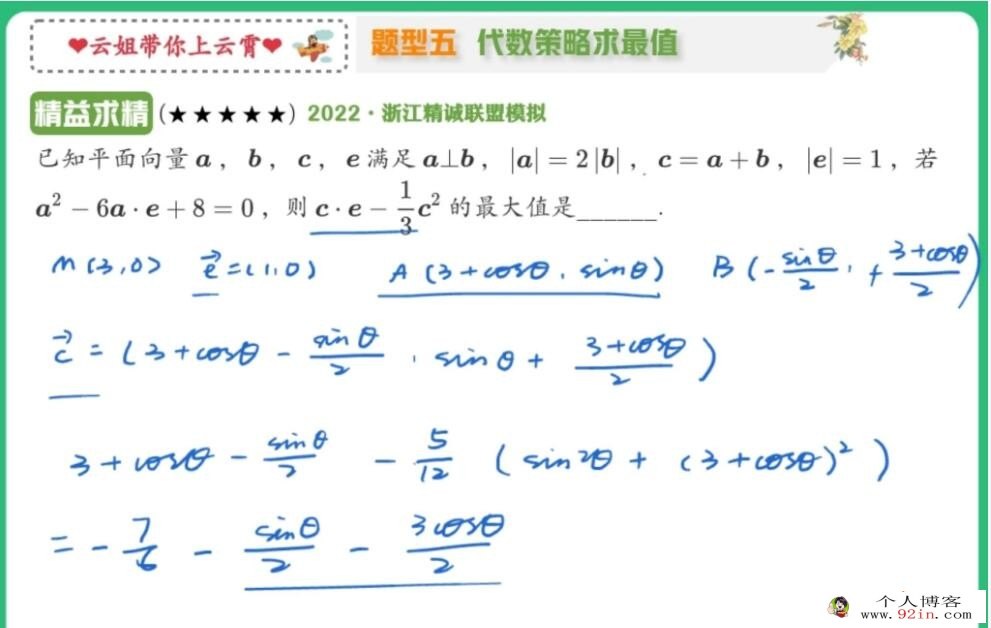 ❤云姐带你上云霄❤ 题型五 代数策略求最值
精益求精 (★★★★★) 2022·浙江精诚联盟模拟
已知平面向量 a, b, c, e 满足 a⊥b, |a|=2|b|, c=a+b, |e|=1, 若
a²-6a·e+8=0, 则 c·e-1/3c² 的最大值是______.
M(3,0) e⃗=(1,0) A(3+cosθ, sinθ) B(-sinθ/2, +3+cosθ/2)
c⃗=(3+cosθ-sinθ/2, sinθ+3+cosθ/2)
3+cosθ-sinθ/2 -5/12 (sin²θ+(3+cosθ)²)
=-7/6-sinθ/2-3cosθ/2
个人博客
www.92in.com